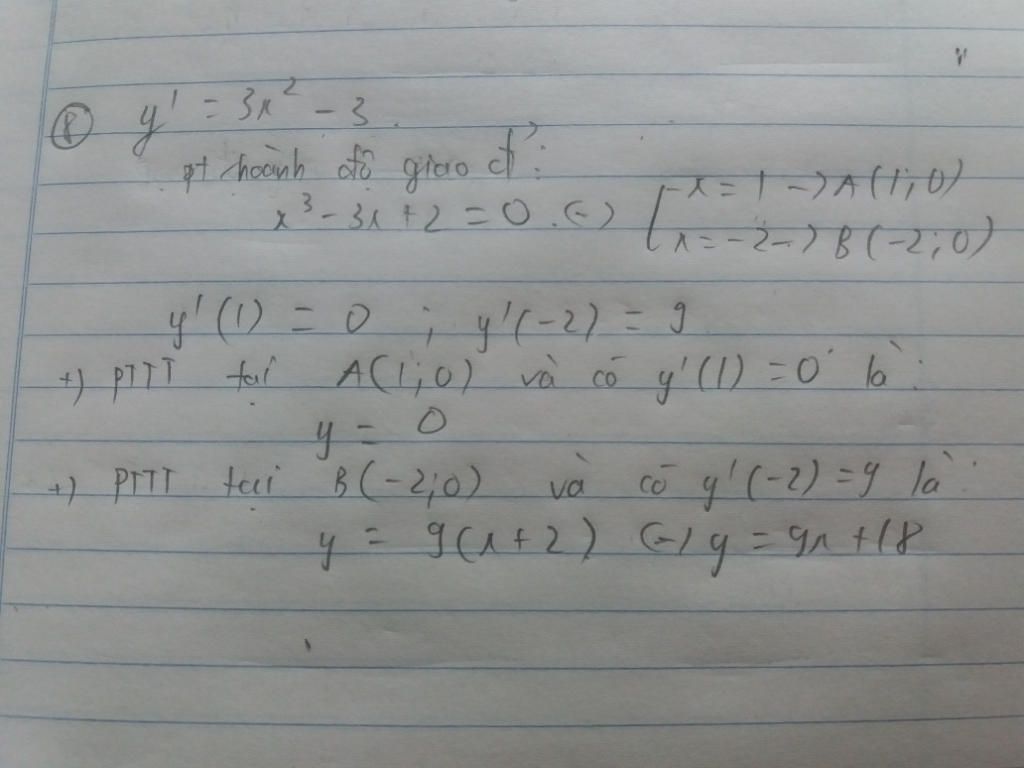 ⑧ y' = 3x² - 3.
pt hoành độ giao đ':
x³ - 3x + 2 = 0. (-) [ x = 1 -> A(1;0)
x = -2 -> B(-2;0)
y'(1) = 0 ; y'(-2) = 9
+) PTTT tại A(1;0) và có y'(1) = 0 là:
y = 0
+) PTTT tại B(-2;0) và có y'(-2) = 9 là:
y = 9(x+2) (-) y = 9x + 18